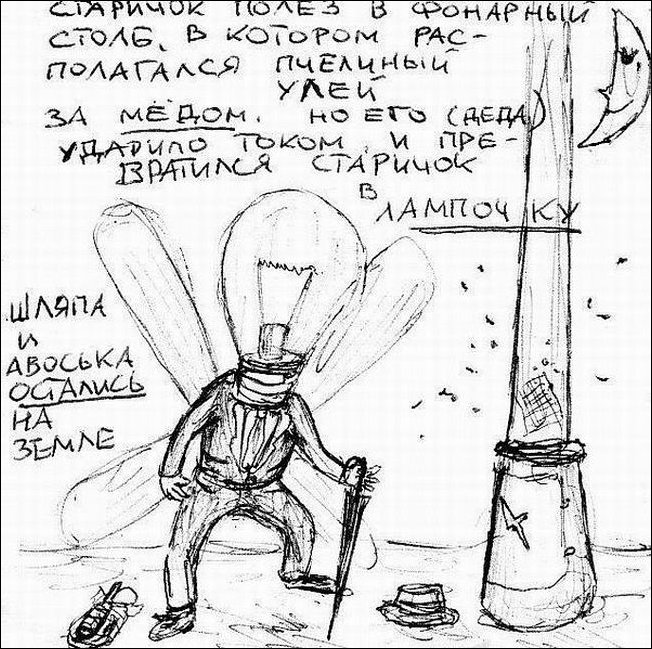 СТАРИЧОК ПОЛЕЗ В ФОНАРНЫЙ
СТОЛБ, В КОТОРОМ РАС-
ПОЛАГАЛСЯ ПЧЕЛИНЫЙ
УЛЕЙ
ЗА МЁДОМ. НО ЕГО (ДЕДА)
УДАРИЛО ТОКОМ, И ПРЕ-
ВРАТИЛСЯ СТАРИЧОК
В
ЛАМПОЧКУ
ШЛЯПА
И
АВОСЬКА
ОСТАЛИСЬ
НА
ЗЕМЛЕ